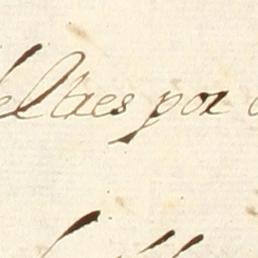 el tres por